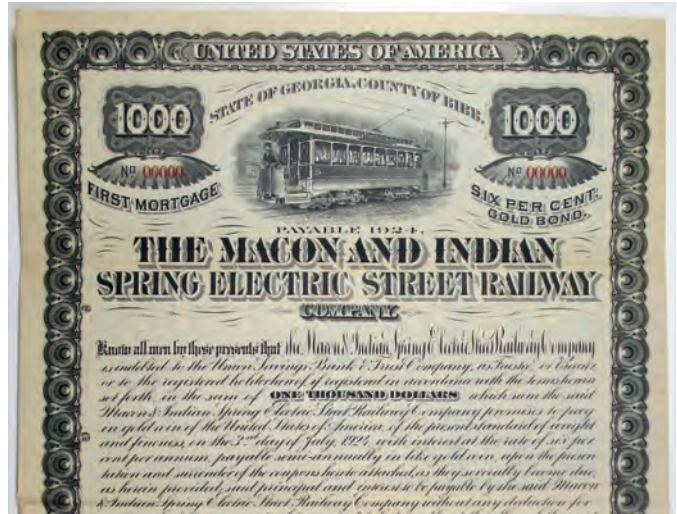 UNITED STATES OF AMERICA
STATE OF GEORGIA, COUNTY OF BIBB.
1000 1000
Nº 00000 Nº 00000
FIRST MORTGAGE SIX PER CENT. GOLD BOND.
PAYABLE 1924.
THE MACON AND INDIAN
SPRING ELECTRIC STREET RAILWAY
COMPANY.
Know all men by these presents that the Macon & Indian Spring Electric Street Railway Company
is indebted to the Union Savings Bank & Trust Company, as Trustee, or bearer
or to the registered holder hereof if registered in accordance with the terms hereon
set forth, in the sum of ONE THOUSAND DOLLARS which sum the said
Macon & Indian Spring Electric Street Railway Company promises to pay
in gold coin of the United States of America, of the present standard of weight
and fineness, on the 2nd day of July, 1924, with interest at the rate of six per
cent per annum, payable semi-annually in like gold coin, upon the presen-
tation and surrender of the coupons hereto attached, as they severally become due,
as herein provided, said principal and interest to be payable by the said Macon
& Indian Spring Electric Street Railway Company without any deduction for